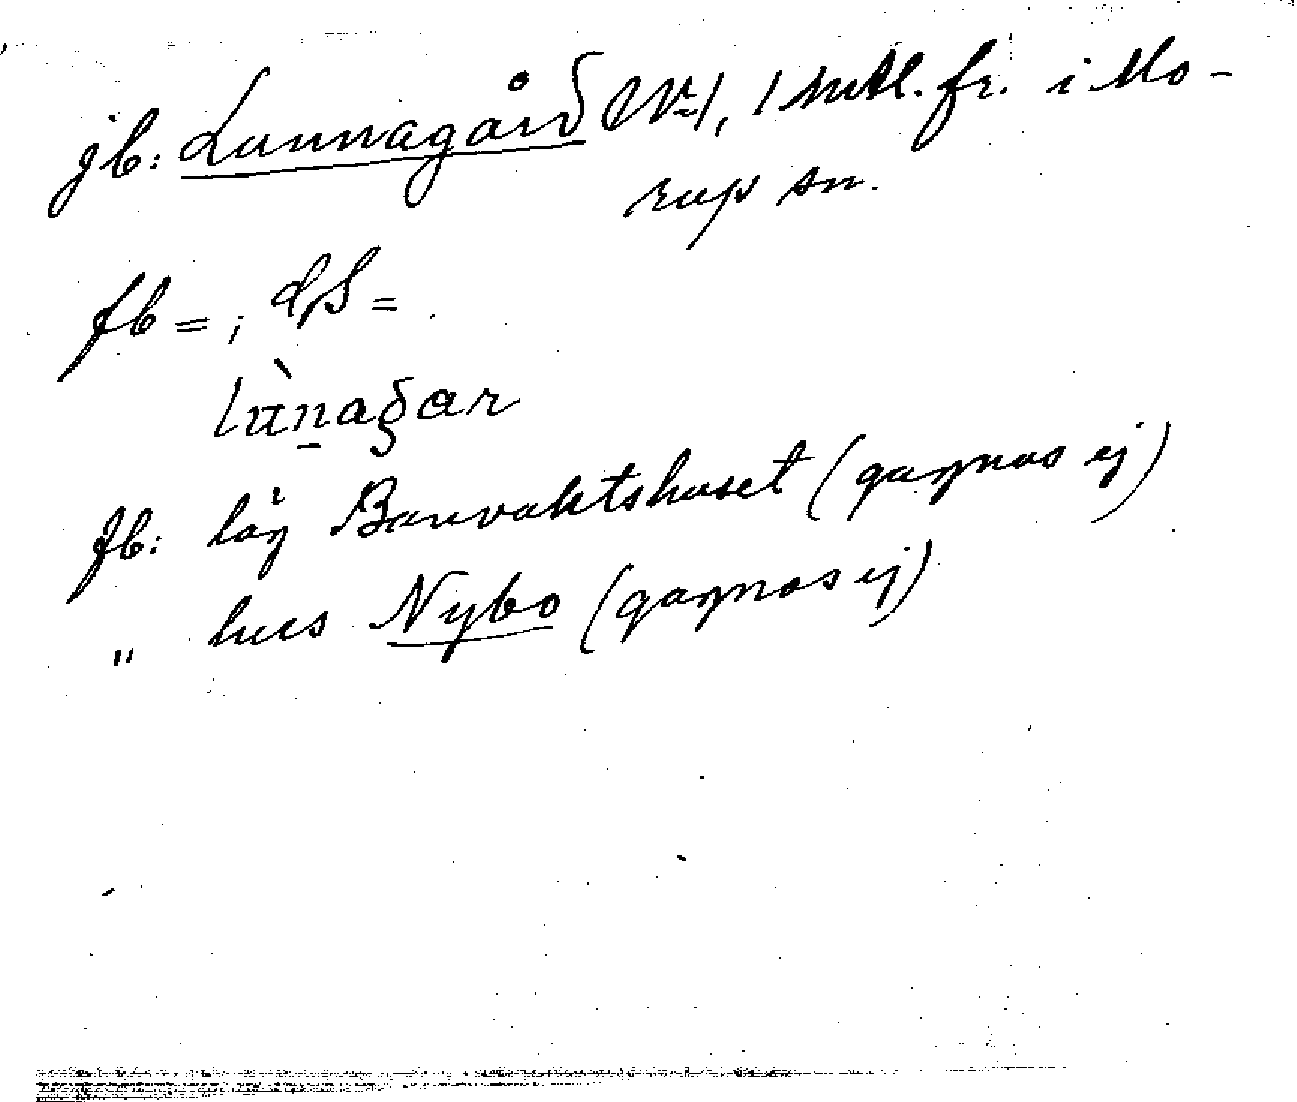 jb: Lunnagård Nr 1, 1 mtl. fr. i Mo-
rup sn.
fb = ; GS =
fb: läg Banvaktshuset (gagnas ej)
" hus Nybo (gagnas ej)